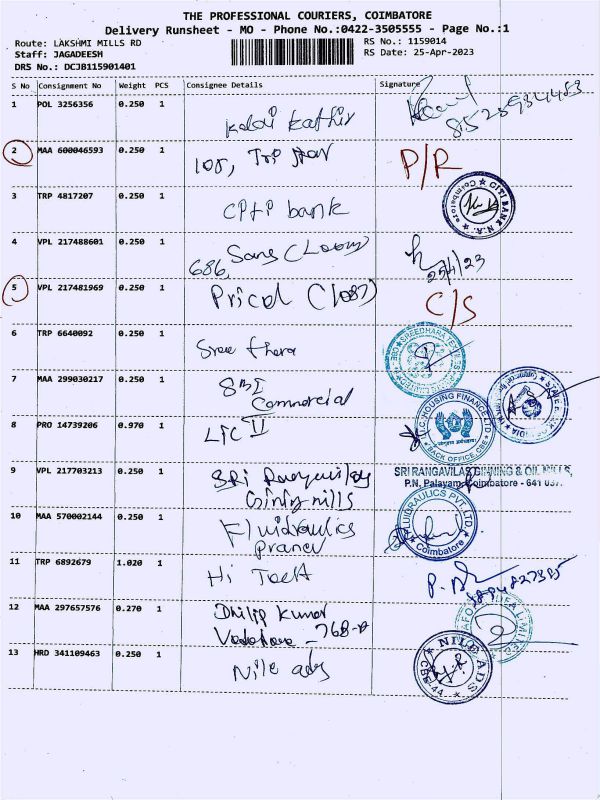 THE PROFESSIONAL COURIERS, COIMBATORE
Delivery Runsheet - MO - Phone No.:0422-3505555 - Page No.:1
Route: LAKSHMI MILLS RD RS No.: 1159014
Staff: JAGADEESH RS Date: 25-Apr-2023
DRS No.: DCJB115901401
S No Consignment No Weight PCS Consignee Details Signature
1 POL 3256356 0.250 1
Kalai Kathir
2 MAA 600046593 0.250 1
108, Trp P/R
3 TRP 4817207 0.250 1
CITI BANK N.A. Coimbatore
citi bank
4 VPL 217488601 0.250 1
Sans (Loom)
686, 25/4/23
5 VPL 217481969 0.250 1
Pricol (1087) C/S
6 TRP 6640092 0.250 1
SREEDHARA TEXTILES
Sree thara
7 MAA 299030217 0.250 1
SBI
Commercial
8 PRO 14739206 0.970 1
LIC II
L.I.C. HOUSING FINANCE LTD
BACK OFFICE, CBE
9 VPL 217703213 0.250 1
SRI RANGAVILAS GINNING & OIL MILLS,
P.N. Palayam, Coimbatore - 641 037.
SRI
mills
10 MAA 570002144 0.250 1
FLUIDRAULICS PVT. LTD.
Coimbatore
Fluidraulics
11 TRP 6892679 1.020 1
Hi Tech
12 MAA 297657576 0.270 1
Dhilip Kumar
13 HRD 341109463 0.250 1
NILE ADS
CBE-44
Nile ads